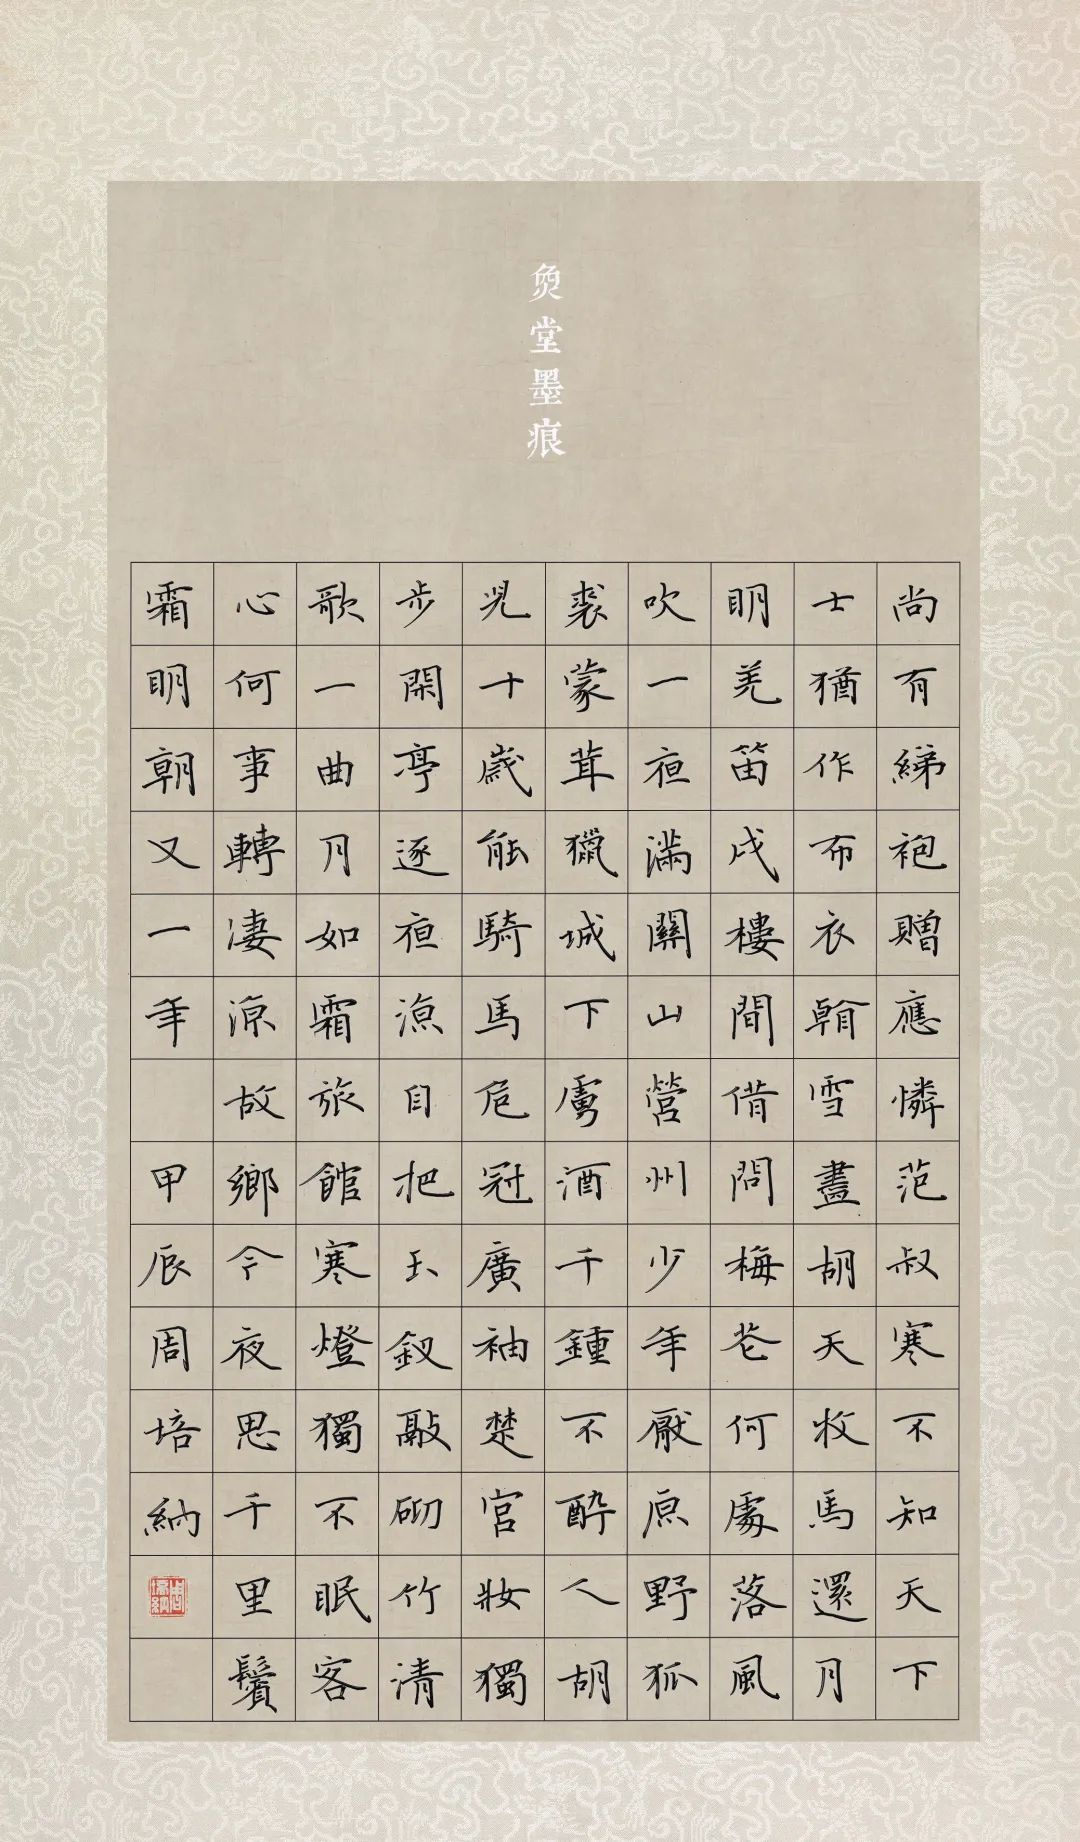 堂墨痕
尚有綈袍贈應憐范叔寒不知天下
士猶作布衣雪盡胡天牧馬還月
明羌笛戍樓間借問梅花何處落風
吹一夜滿關山營州少年厭原野狐
裘蒙茸獵城下虜酒千鍾不醉人胡
兒十歲能騎馬危冠廣袖楚宮妝獨
步閑亭逐夜涼自把玉釵敲砌竹清
歌一曲月如霜旅館寒燈獨不眠客
心何事轉凄涼故鄉今夜思千里鬢
霜明朝又一年 甲辰周培納
周培納